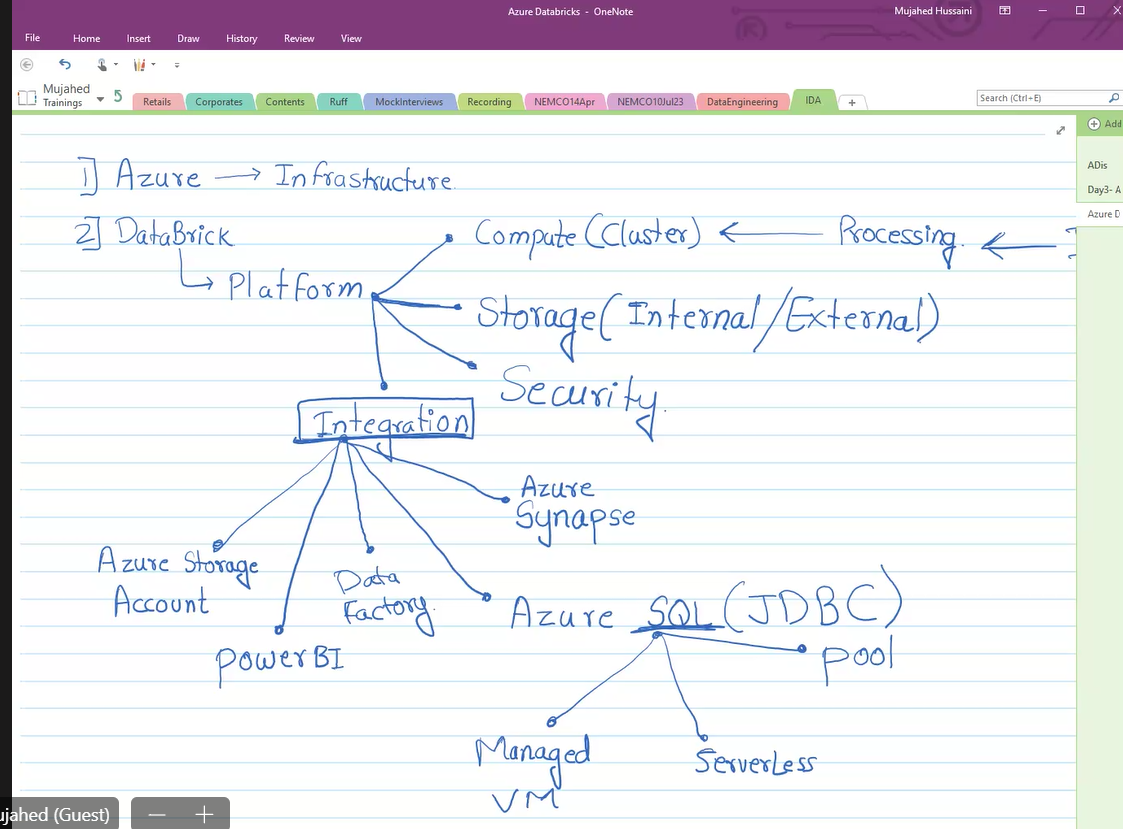 Azure Databricks - OneNote
Mujahed Hussaini
File Home Insert Draw History Review View
Mujahed
Trainings
Retails Corporates Contents Ruff MockInterviews Recording NEMCO14Apr NEMCO10Jul23 DataEngineering IDA +
Search (Ctrl+E)
Add
ADis
Day3- A
Azure D
1] Azure → Infrastructure.
2] DataBrick
Compute (Cluster) ← Processing. ←
Platform
Storage (Internal/External)
Security.
Integration
Azure
Synapse
Azure Storage
Account
Data
Factory.
Azure SQL (JDBC)
PowerBI
Pool
Managed
VM
ServerLess
ujahed (Guest)